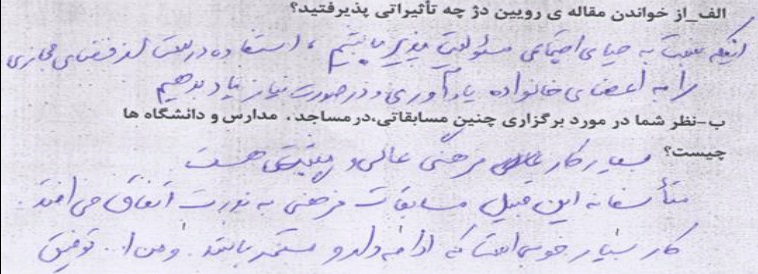 الف_از خواندن مقاله ی رویین دژ چه تأثیراتی پذیرفتید؟
اینکه نسبت به حیای اجتماعی مسئولیت پذیر باشیم ، استفاده درست از فضای مجازی
را به اعضای خانواده یادآوری و در صورت نیاز یاد بدهیم
ب-نظر شما در مورد برگزاری چنین مسابقاتی،در مساجد، مدارس و دانشگاه ها
چیست؟
بسیار کار فرهنگی عالی و هست
متأسفانه این قبیل مسابقات فرهنگی به ندرت اتفاق می افتد.
کار بسیار خوبی است که ادامه دار و مستمر باشد. و من ا... توفیق